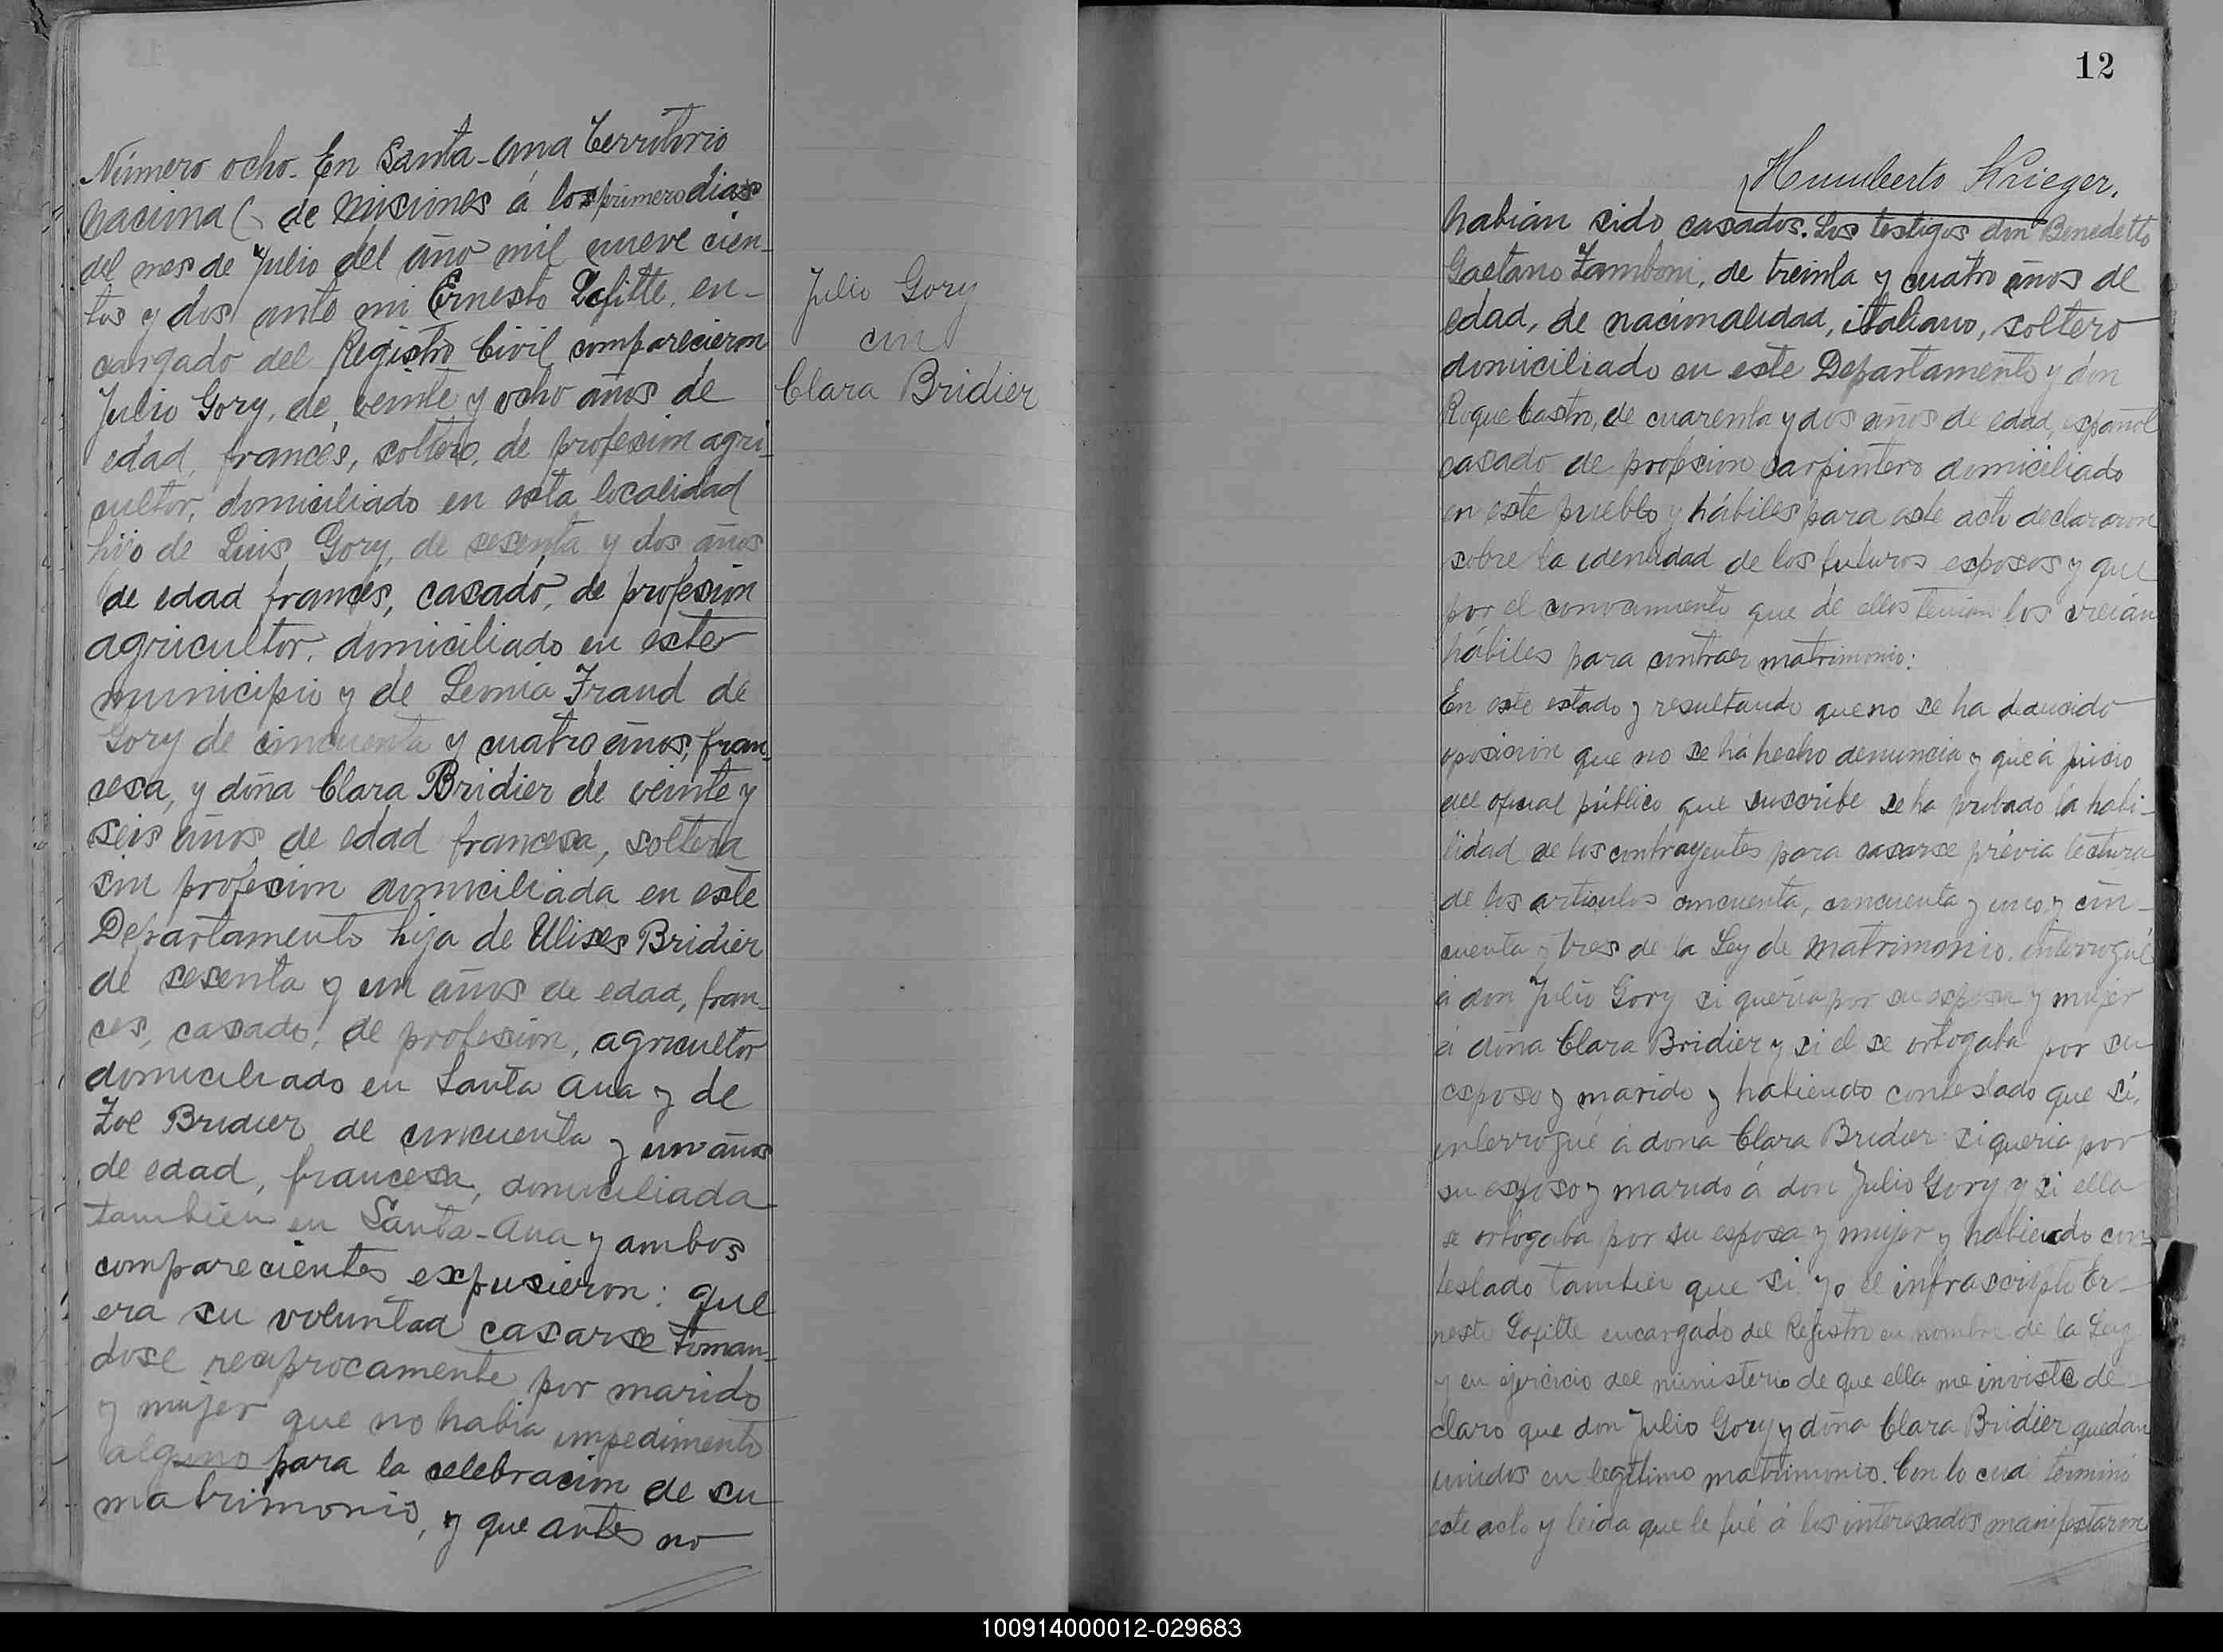 Número ocho. En Santa-Ana Territorio
Nacional de Misiones á los primero dias
del mes de Julio del año mil nueve cien-
tos y dos ante mi Ernesto Lafitte, en-
cargado del Registro Civil comparecieron
Julio Gory, de veinte y ocho años de
edad, francés, soltero, de profesion agri-
cultor, domiciliado en esta localidad
hijo de Luis Gory, de sesenta y dos años
de edad francés, casado, de profesion
agricultor, domiciliado en este
municipio y de Leonia Fraud de
Gory de cincuenta y cuatro años, fran-
cesa, y doña Clara Bridier de veinte y
seis años de edad francesa, soltera
sin profesion domiciliada en este
Departamento hija de Ulises Bridier
de sesenta y un años de edad, fran-
ces, casado, de profesion, agricultor
domiciliado en Santa Ana y de
Zoe Bridier de cincuenta y un años
de edad, francesa, domiciliada
tambien en Santa-Ana y ambos
comparecientes expusieron: que
era su voluntad casarse toman-
dose reciprocamente por marido
y mujer que no habia impedimento
alguno para la celebracion de su
matrimonio, y que antes no
Julio Gory
con
Clara Bridier
12
Humberto Krieger.
habian sido casados. Los testigos don Benedetto
Gaetano Zamboni, de treinta y cuatro años de
edad, de nacionalidad, italiano, soltero
domiciliado en este Departamento y don
Roque Castro, de cuarenta y dos años de edad, español
casado de profesion carpintero domiciliado
en este pueblo y hábiles para este acto declararon
sobre la identidad de los futuros esposos y que
por el conocimiento que de ellos tenian los creian
hábiles para contraer matrimonio:
En este estado y resultando que no se ha deducido
oposicion que no se há hecho denuncia y que á juicio
del oficial público que suscribe se ha probado la habi-
lidad de los contrayentes para casarse prévia lectura
de los articulos cincuenta, cincuenta y uno y cin-
cuenta y tres de la Ley de Matrimonio, interrogué
á don Julio Gory si queria por su esposa y mujer
á doña Clara Bridier y si el se ortogaba por su
esposo y marido y habiendo contestado que si,
interrogué á dona Clara Bridier si queria por
su esposo y marido á don Julio Gory y si ella
se ortogaba por su esposa y mujer y habiendo con
testado tambien que si yo el infrascripto Er-
nesto Lafitte encargado del Registro en nombre de la Ley
y en ejercicio del ministerio de que ella me inviste de-
claro que don Julio Gory y doña Clara Bridier quedan
unidos en legítimo matrimonio. Con lo cual terminó
este acto y leida que le fué á los interesados manifestaron
100914000012-029683